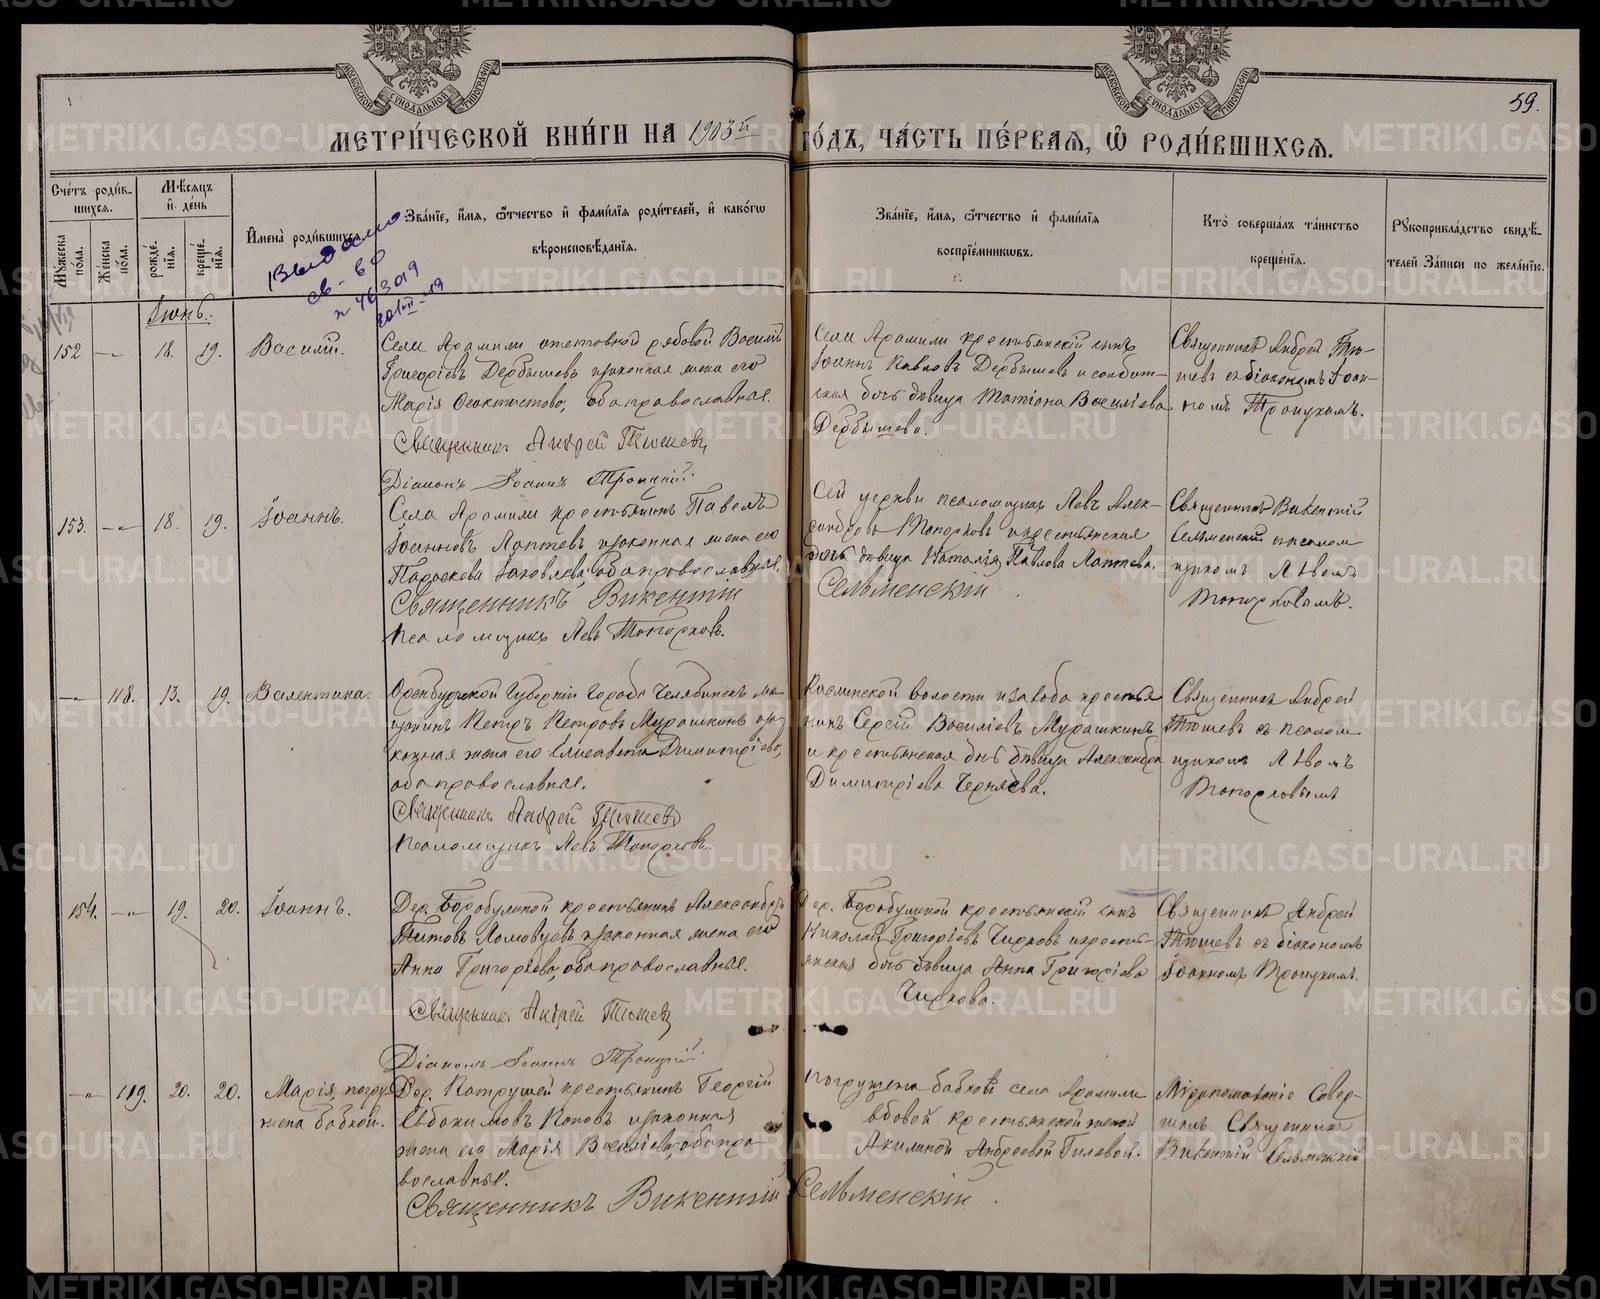 МОСКОВСКОЙ СУНОДАЛЬНОЙ ТИПОГРАФИИ
МОСКОВСКОЙ СУНОДАЛЬНОЙ ТИПОГРАФИИ
59.
МЕТРИ́ЧЕСКОЙ КНИ́ГИ НА 1903й ГО́ДЪ, ЧА́СТЬ ПЕ́РВАѦ, Ѡ҆ РОДИ́ВШИХСѦ.
Сче́тъ роди́в-
шихсѧ.
Мꙋ́жеска по́ла.
Же́нска по́ла.
Мѣ́сѧцъ и҆ де́нь
рожде́нїѧ.
креще́нїѧ.
И҆мена̀ роди́вшихсѧ.
Зва́нїе, и҆́мѧ, ѻ҆́тчество и҆ фами́лїѧ роди́телей, и҆ како́гѡ
вѣроисповѣ́данїѧ.
Зва́нїе, и҆́мѧ, ѻ҆́тчество и҆ фами́лїѧ
воспрїе́мникѡвъ.
Кто̀ соверша́лъ та́инство
креще́нїѧ.
Рꙋкоприкла́дство свидѣ́-
телей за́писи по жела́нїю.
Выдано
св-во
№ 463019
Іюнь.
152 —„— 18. 19. Василій.
Села Арамили отставной рядовой Василій
Григоріевъ Дербышевъ и законная жена его
Марія Ѳеоктистова, оба православные.
Священникъ Андрей Тюшевъ
Діаконъ Іоаннъ Троицкій.
Села Арамили крестьянскій сынъ
Іоаннъ Павловъ Дербышевъ и солдат-
ская дочь дѣвица Татіана Василіева
Дербышева.
Священникъ Андрей Тю-
шевъ съ діакономъ Іоан-
номъ Троицкимъ.
153. —„— 18. 19. Іоаннъ.
Села Арамили крестьянинъ Павелъ
Іоанновъ Лаптевъ и законная жена его
Параскева Іаковлева, оба православные.
Священникъ Викентій Сельменскій
Псаломщикъ Левъ Топорковъ.
Сей церкви псаломщикъ Левъ Алек-
сандровъ Топорковъ и крестьянская
дочь дѣвица Наталія Павлова Лаптева.
Священникъ Викентій
Сельменскій съ псалом
щикомъ Львомъ
Топорковымъ.
—„— 118. 13. 19. Валентина.
Оренбургской губерніи города Челябинскъ мѣ
щанинъ Петръ Петровъ Мурашкинъ и за
конная жена его Елисавета Димитріева,
оба православные.
Священникъ Андрей Тюшевъ
Псаломщикъ Левъ Топорковъ.
Каслинской волости и завода крестья
нинъ Сергій Василіевъ Мурашкинъ
и крестьянская дочь дѣвица Александра
Димитріева Черняева.
Священникъ Андрей
Тюшевъ съ псалом
щикомъ Львомъ
Топорковымъ
154. —„— 19. 20. Іоаннъ.
Дер. Бородулиной крестьянинъ Александръ
Титовъ Ломовцевъ и законная жена его
Анна Григоріева, оба православные.
Священникъ Андрей Тюшевъ
Діаконъ Іоаннъ Троицкій.
Дер. Бородулиной крестьянскій сынъ
Николай Григоріевъ Чирковъ и кресть-
янская дочь дѣвица Анна Григоріева
Чиркова.
Священникъ Андрей
Тюшевъ съ діакономъ
Іоанномъ Троицкимъ.
—„— 119. 20. 20. Марія, погру
жена бабкой.
Дер. Патрушей крестьянинъ Георгій
Евдокимовъ Поповъ и законная
жена его Марія Василіева, оба пра
вославные.
Священникъ Викентій Сельменскій
Погружена бабкой села Арамили
вдовой крестьянской женой
Акилиной Андреевой Гилевой.
Мѵропомазаніе Совер-
шилъ Священникъ
Викентій Сельменскій
METRIKI.GASO-URAL.RU